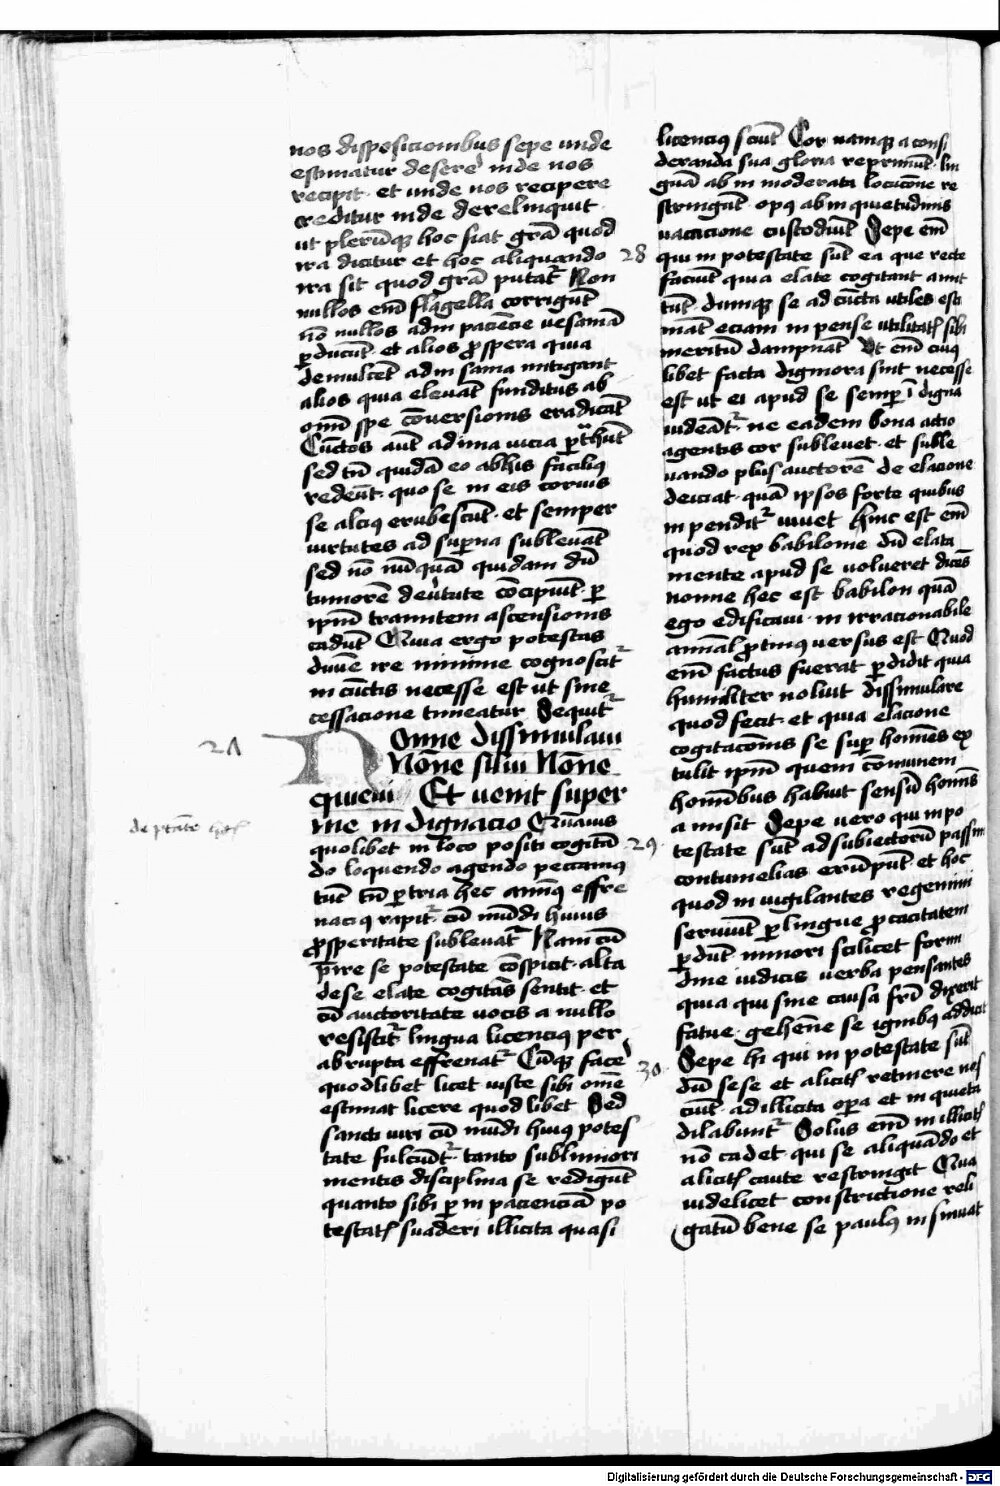 nos disposicionibus sepe unde
estimatur deserē inde nos
recipit · et unde nos recipere
creditur inde derelinquit ·
ut plerūqꝫ hoc fiat grā quod
ira dicitur et hoc aliquando
ira sit quod grā putat᷑ Non
nullos em̄ flagella corrigūt
nō nullos adm paciēcie vesaniā
ꝑducūt · et alios ꝓspera quia
demulcēt adm sania mitigant
alios quia elevāt funditus ab
om̄i spe cōversionis eradicāt
Cūctos aut̄ ad ima vicia ꝑt͛hūt
sed tn̄ quidā eo abhis faciliꝰ
redeūt · quo se in eis corruis
se alciꝰ erubescūt · et semper
virtutes ad suꝑna sublevāt
sed nō nūquā quidam dū
tumorē de v͛tute cōcipiūt · ꝑ
ipm̄ tramitem ascensionis
cadūt Quia ergo potestas
divīe ire minime cognoscit᷑
in cūctis necesse est ut sine
cessacione timeatur Sequit᷑
21
Nonne dissimulavi
Nōne silui Nōne
quievi Et venit super
me indignacio Quāvis
de ptāte
quolibet in loco positi cogitā
do loquendo agendo peccamꝰ
tūc tn̄ ꝑ tria hec animꝰ effre
naciꝰ rapit᷑ · cū mūdi huius
ꝓsperitate sublevat᷑ Nam cū
p̄ire se potestate cōspicit · alta
de se elate cogitās sentit · et
cū auctoritate vocis a nullo
resistit᷑ lingua licenciꝰ per
abrupta effrenat᷑ Cūqꝫ face͛
quodlibet licet iuste sibi om̄e
estimat licere quod libet Sed
sancti viri cū mūdi huiꝰ potes
tate fulciūt᷑ · tanto sublimiori
mentis disciplina se redigūt
quanto sibi ꝑ in pacienciā po
testatꝭ suaderi illicita quasi
licenciꝰ sciūt Cor namqꝫ a consi
deranda sua gloria reprimūt · lin
guā ab in moderata locucōne re
stringūt · opꝰ ab in quietudinis
vacacione custodiūt Sepe em̄
28
qui in potestate sūt ea que recte
faciūt quia elate cogitant amit
tūt · dumqꝫ se ad cūcta utiles esti
māt eciam in pense utilitatꝭ sibi
meritū dampnāt Ut em̄ cuiꝰ
libet facta digniora sint necesse
est ut ei apud se semꝑ ī digna
videāt᷑ · ne eadem bona actio
agentis cor sublevet · et suble
vando plus auctorē de elacione
deiciat · quā ipsos forte quibus
in pendit᷑ iuvet Hinc est em̄
quod rex babilonie dū elata
mente apud se volveret dicēs
nonne hec est babilon quā
ego edificavi · in irracionabile
animal ꝓtinꝰ versus est Quod
em̄ factus fuerat ꝑdidit quia
humiliter noluit dissimulare
quod fecit · et quia elacione
cogitacōnis se suꝑ homīes ex
tulit ipm̄ quem cōmunem
hominibus habuit sensū homīs
amisit Sepe vero qui in po
29
testate sūt ad subiectorū passim
contumelias erūpūt · et hoc
quod in vigilantes regimini
serviūt ꝑ lingue ꝓcacitatem
ꝑdūt · minori scilicet formi
dine iudicis verba pensantes
quia qui sine causa fr̄i dixerit
fatue · gehēne se ignibꝰ addicit
30
Sepe hi qui in potestate sūt
dū sese et alicitꝭ retinere nes
ciūt · ad illicita oꝑa et in quieta
dilabunt᷑ · Solus em̄ in illicitꝭ
nō cadet · qui se aliquādo et
a licitꝭ caute restringit Qua
videlicet constrictione reli
gatū bene se paulꝰ insinuat
Digitalisierung gefördert durch die Deutsche Forschungsgemeinschaft - DFG